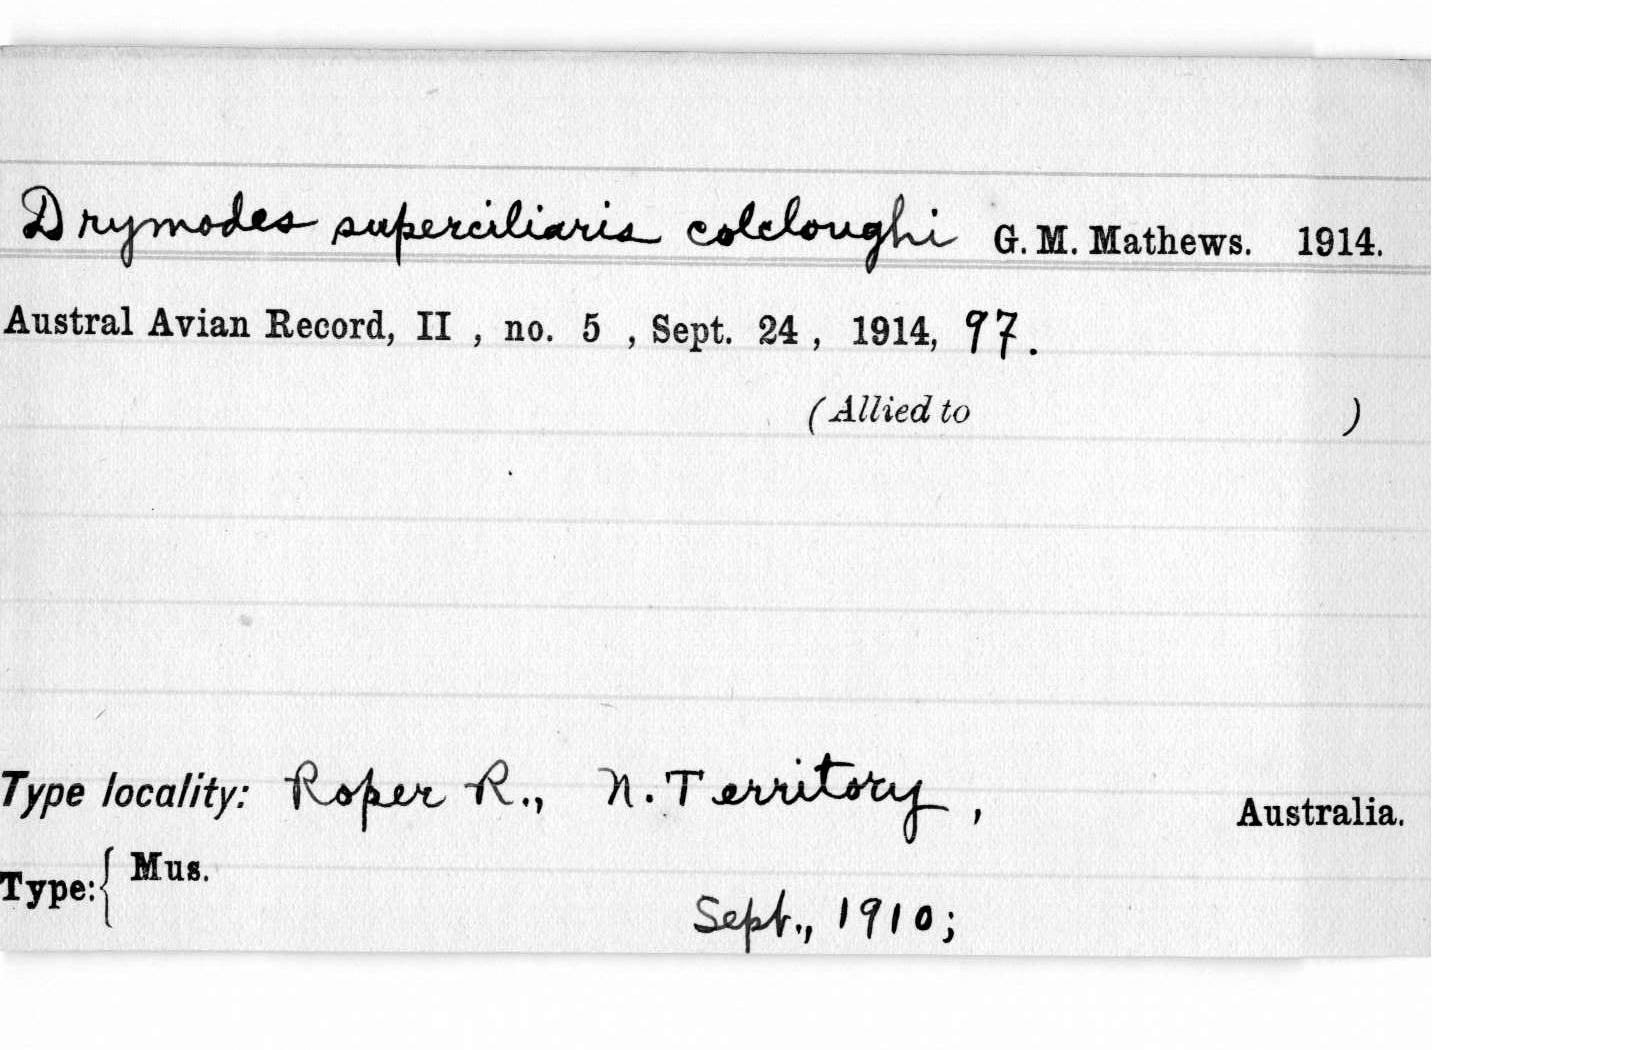 Drymodes superciliaris colcloughi G. M. Mathews. 1914.
Austral Avian Record, II , no. 5 , Sept. 24 , 1914, 97.
(Allied to )
Type locality: Roper R., N. Territory , Australia.
Type: { Mus.
Sept., 1910;